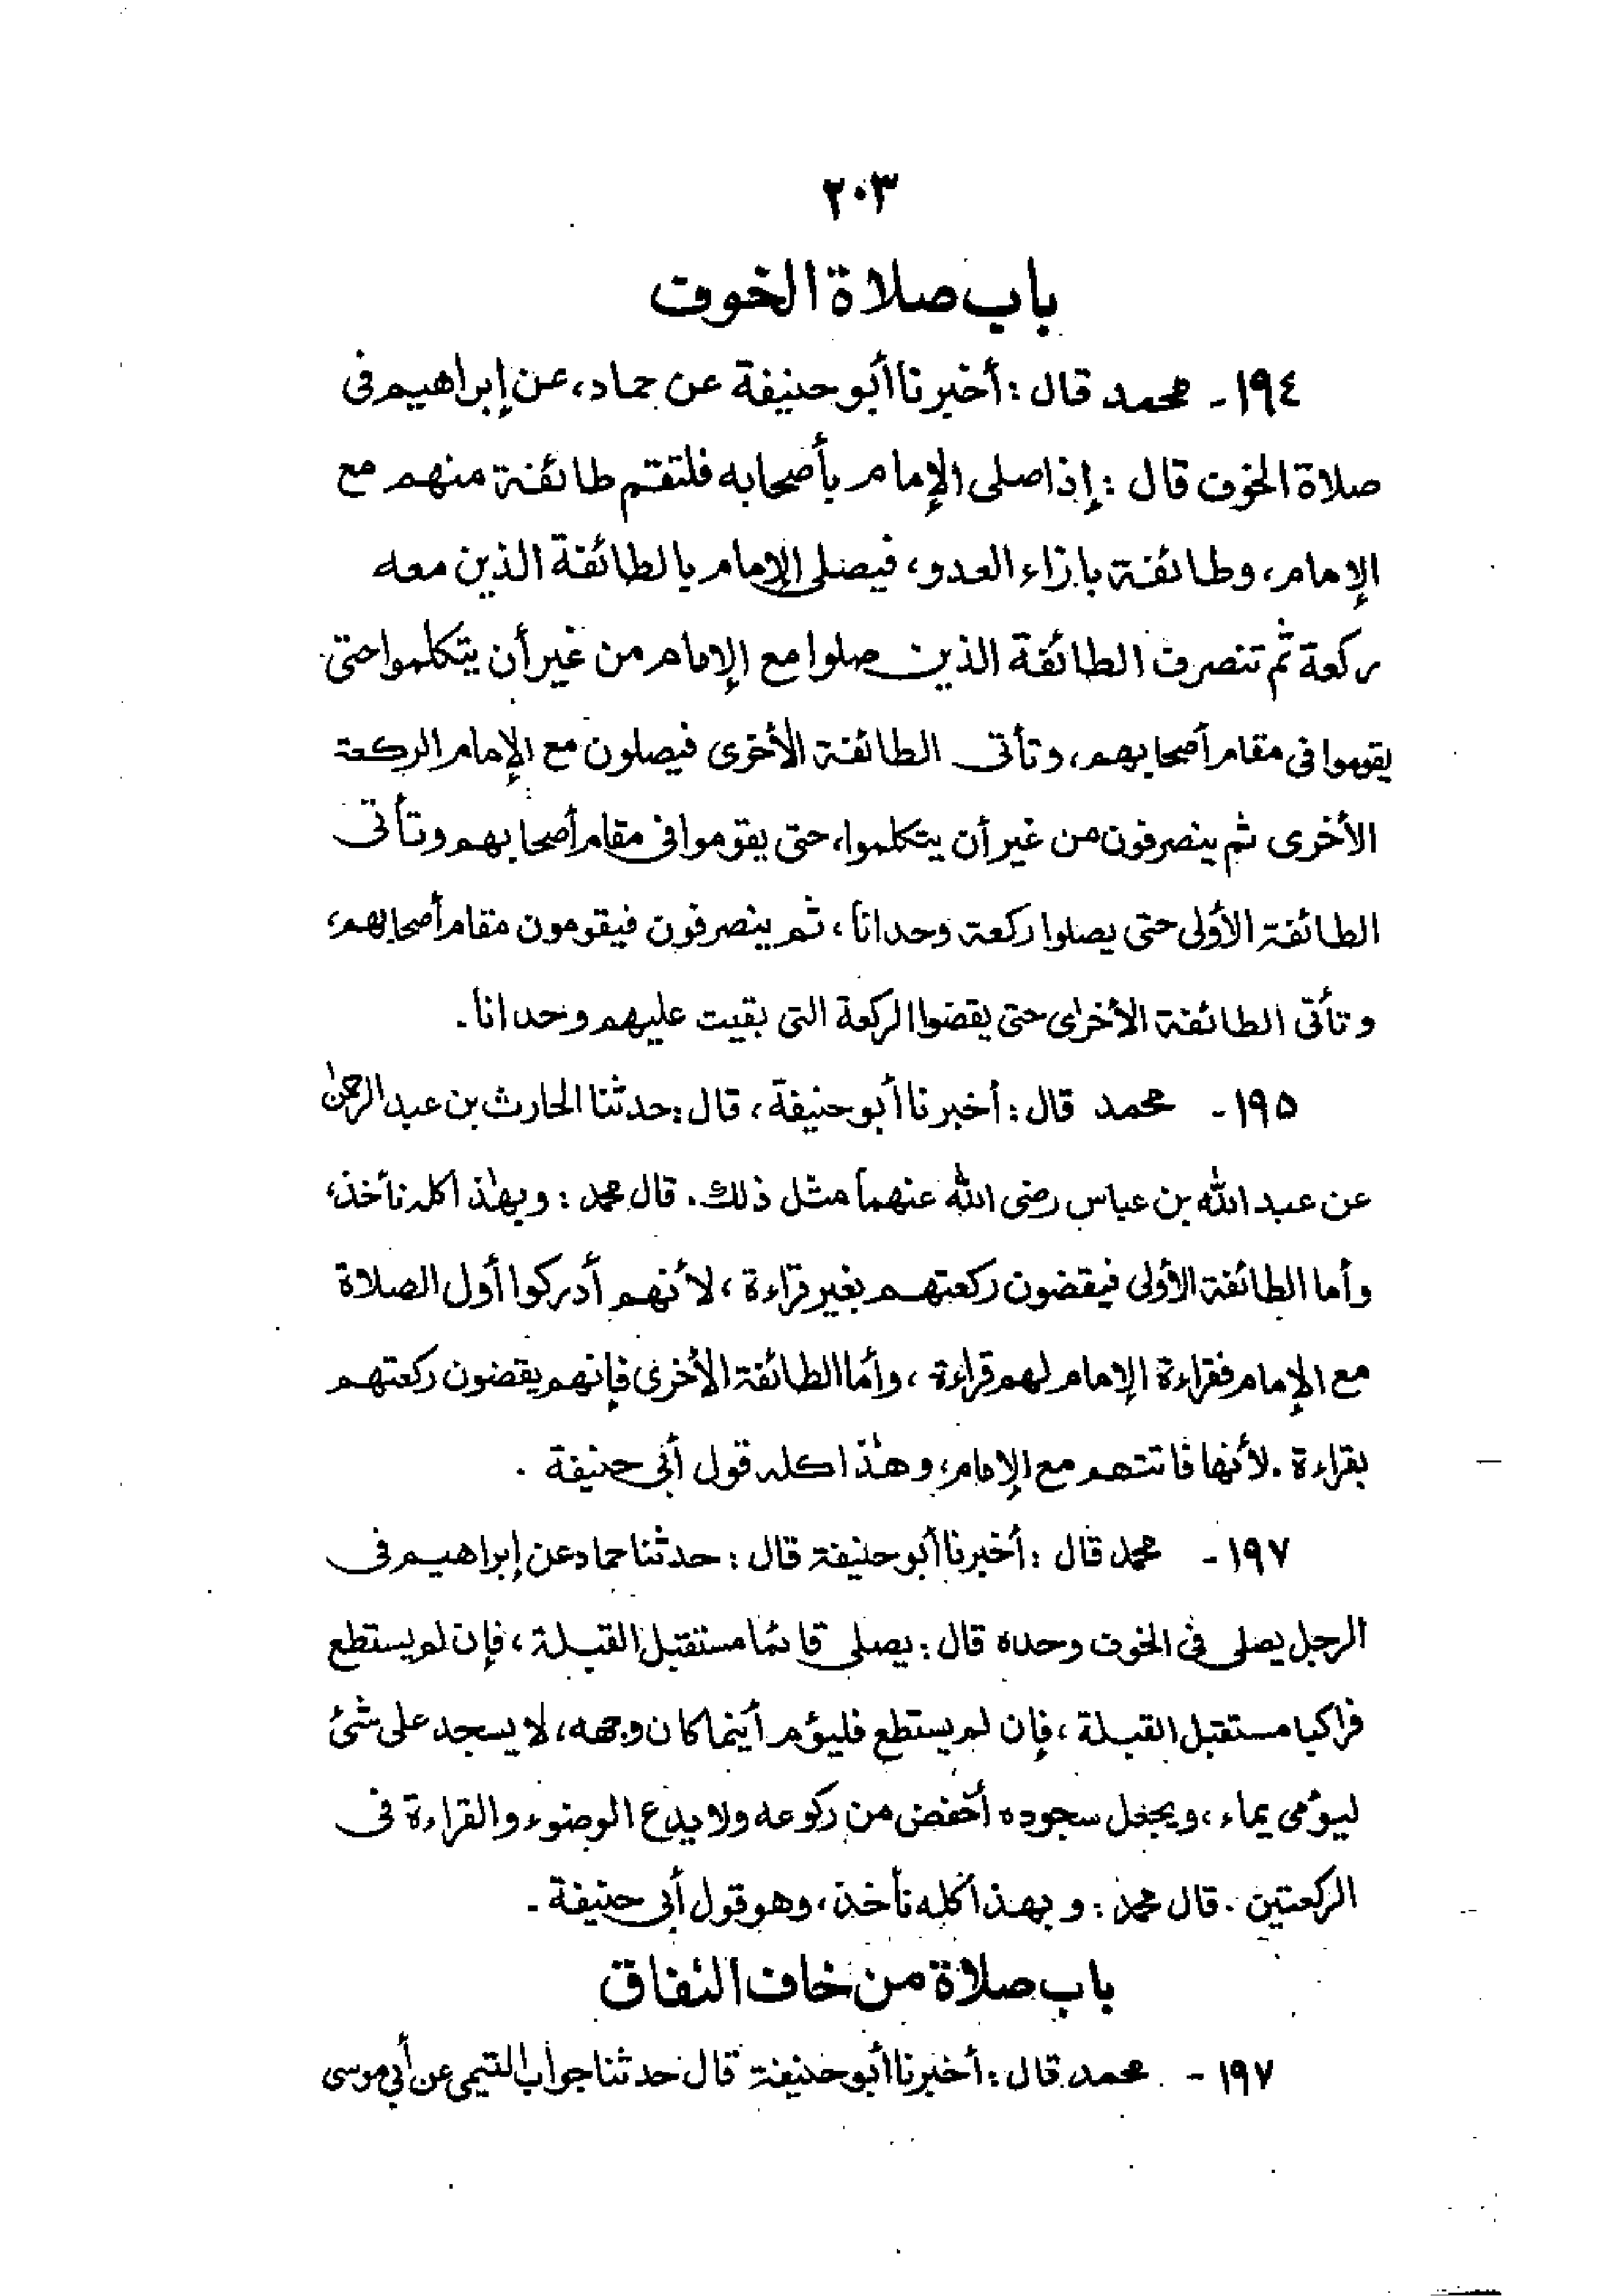 ٢٠٣
باب صلاة الخوف
١٩٤ - محمد قال : أخبرنا أبو حنيفة عن حماد، عن إبراهيم فى
صلاة الخوف قال : إذا صلى الإمام بأصحابه فلتقم طائفة منهم مع
الإمام، وطائفة بإزاء العدو، فيصلى الإمام بالطائفة الذين معه
ركعة ثم تنصرف الطائفة الذين صلوا مع الإمام من غير أن يتكلموا حتى
يقوموا فى مقام أصحابهم، وتأتى الطائفة الأخرى فيصلون مع الإمام الركعة
الأخرى ثم ينصرفون من غير أن يتكلموا، حتى يقوموا فى مقام أصحابهم وتأتى
الطائفة الأولى حتى يصلوا ركعة وحدانا، ثم ينصرفون فيقومون مقام أصحابهم،
وتأتى الطائفة الأخرى حتى يقضوا الركعة التى بقيت عليهم وحدانا -
١٩٥ - محمد قال : أخبرنا أبو حنيفة، قال : حدثنا الحارث بن عبد الرحمٰن
عن عبد الله بن عباس رضى الله عنهما مثل ذلك . قال محمد : وبهٰذا كله نأخذ،
وأما الطائفة الأولى فيقضون ركعتهم بغير قراءة، لأنهم أدركوا أول الصلاة
مع الإمام فقراءة الإمام لهم قراءة، وأما الطائفة الأخرى فإنهم يقضون ركعتهم
بقراءة . لأنها فاتتهم مع الإمام، وهٰذا كله قول أبى حنيفة .
١٩٧ - محمد قال : أخبرنا أبو حنيفة قال : حدثنا حماد عن إبراهيم فى
الرجل يصلى فى الخوف وحده قال : يصلى قائما مستقبل القبلة، فإن لم يستطع
فراكبا مستقبل القبلة، فإن لم يستطع فليؤم أينما كان وجهه، لا يسجد على شئ
ليؤمى يماء، ويجعل سجوده أخفض من ركوعه ولا يدع الوضوء والقراءة فى
الركعتين . قال محمد : وبهذا كله نأخذ، وهو قول أبى حنيفة -
باب صلاة من خاف النفاق
١٩٧ - محمد قال : أخبرنا أبو حنيفة قال حدثنا جواب التيمى عن أبى موسى